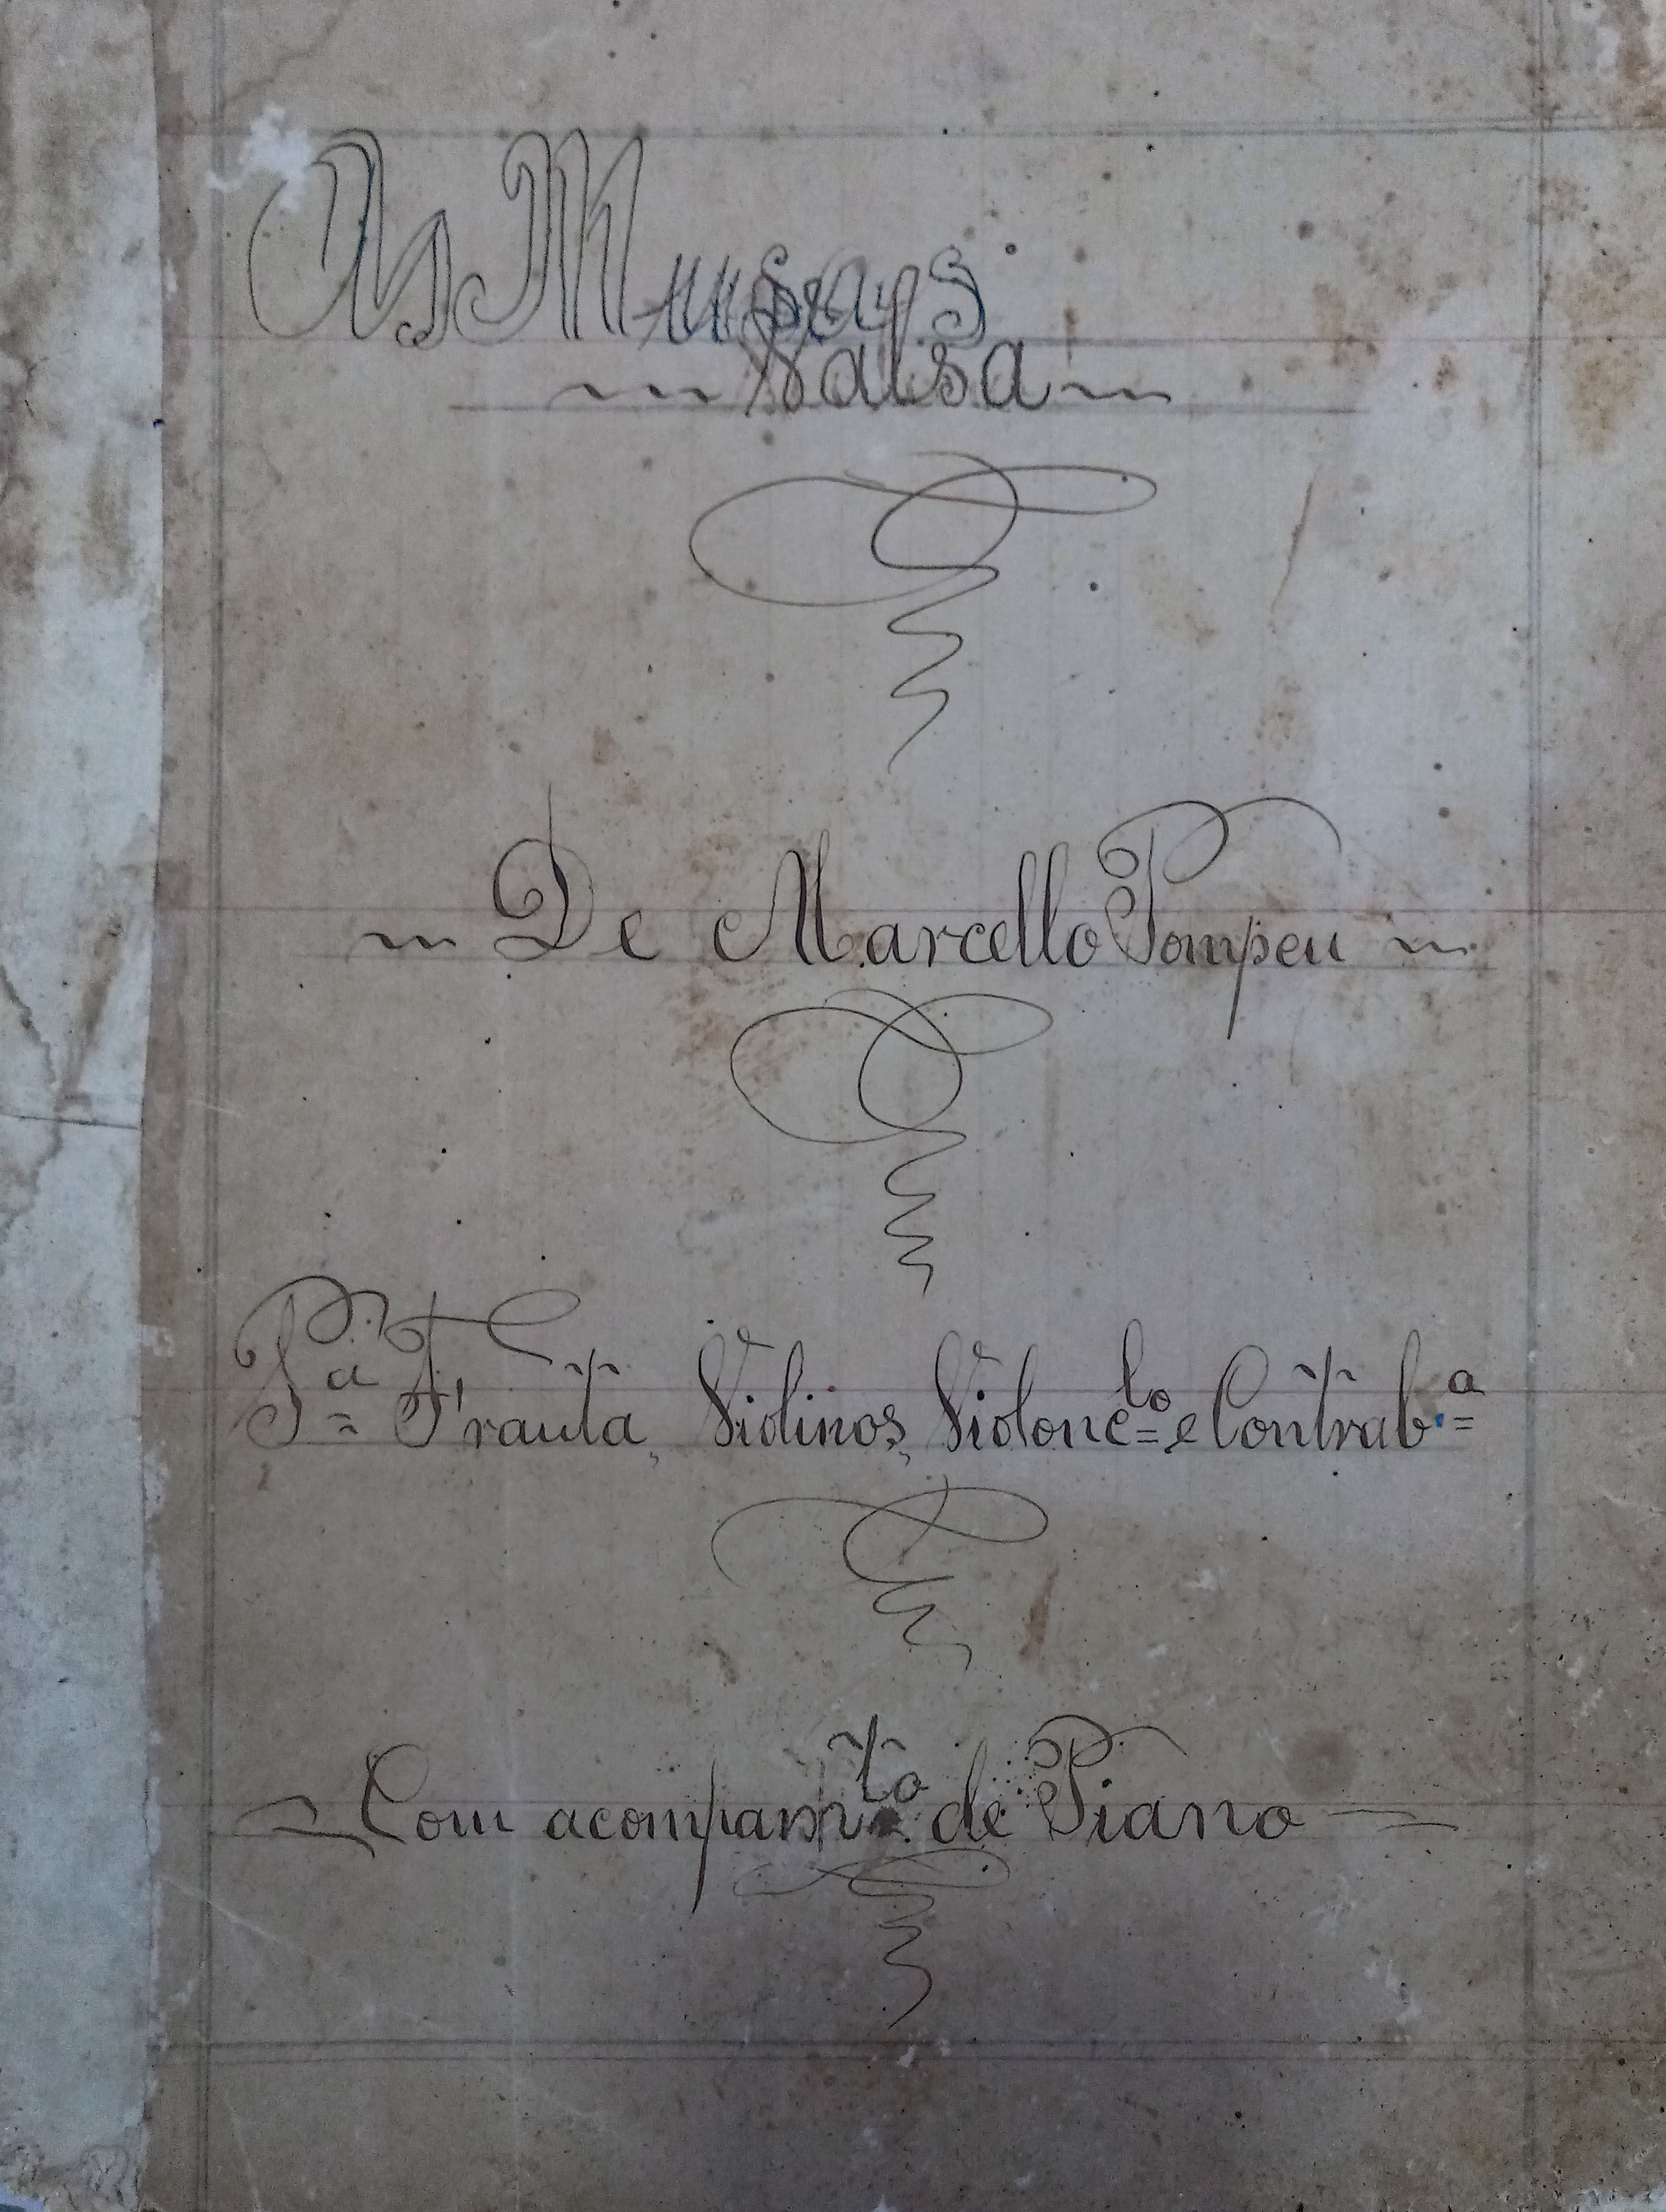 As Musas
Valsa
De Marcello Pompeu
Pª Frauta, Violinos, Violoncˡº e Contrabª
Com acompanmᵗº de Piano